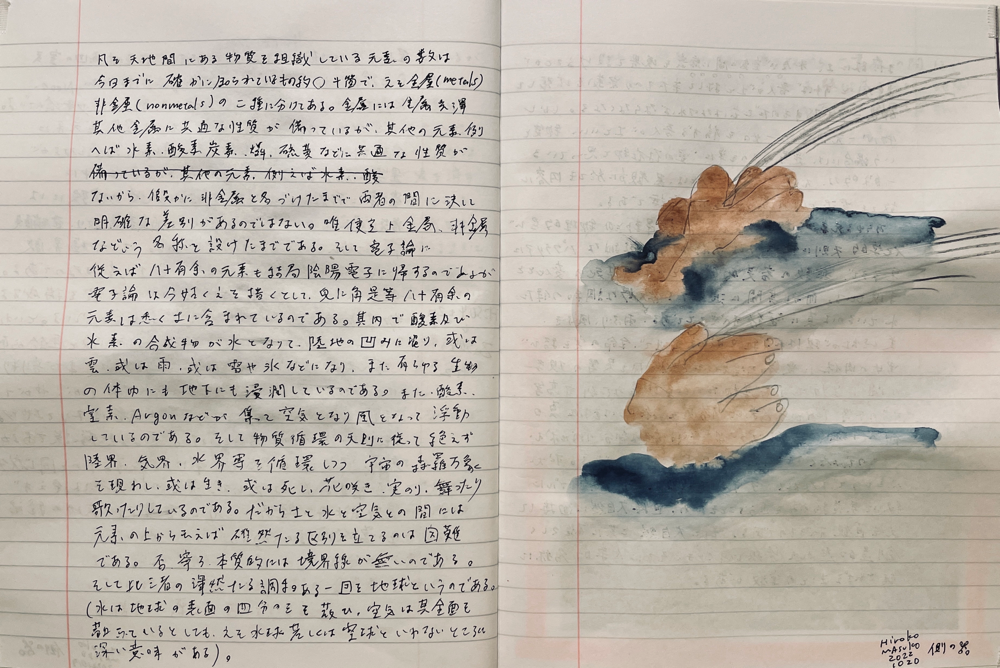 凡そ天地間にある物質を組織している元素の数は
今日までに確かに知られているもの約八十箇で、之を金屋(metals)
非金屋(nonmetals)の二種に分けてある。金属には金属光澤
其他金属に共通な性質が備っているが、其他の元素、例
へば水素、酸素、炭素、燐、硫黄などに共通な性質が
備っているが、其他の元素、例えば水素、酸
ないから、假りに非金属と名づけたまでで両者の間に決して
明確な差別があるのではない。唯便宜上金属、非金属
などいう名称を設けたまでである。そして電子論に
従えば八十有余の元素も結局陰陽電子に帰するのであるが
電子論は今姑く之を措くとして、兎に角是等八十有余の
元素は悉く土に含まれているのである。其内で酸素及び
水素の合成物が水となって、陸地の凹みに溜り、或は
雲、或は雨、或は雪や氷などになり、また有らゆる生物
の体内にも地下にも浸潤しているのである。また、酸素、
窒素、Argonなどが集って空気となり風となって浮動
しているのである。そして物質循環の天則に従って絶えず
陸界、気界、水界等を循環しつつ宇宙の森羅万象
を現わし、或は生き、或は死し、花咲き、実のり、舞ったり
歌ったりしているのである。だから土と水と空気との間には
元素の上から云えば確然たる区別を立てるのは困難
である。否寧ろ本質的には境界線が無いのである。
そして此三者の渾然たる調和ある一団を地球というのである。
(水は地球の表面の四分の三を蔽ひ、空気は其全面を
蔽っているとしても、之を水球若しくは空球といわないところに
深い意味がある)。
Hiroko
MASUKO
2022
1020